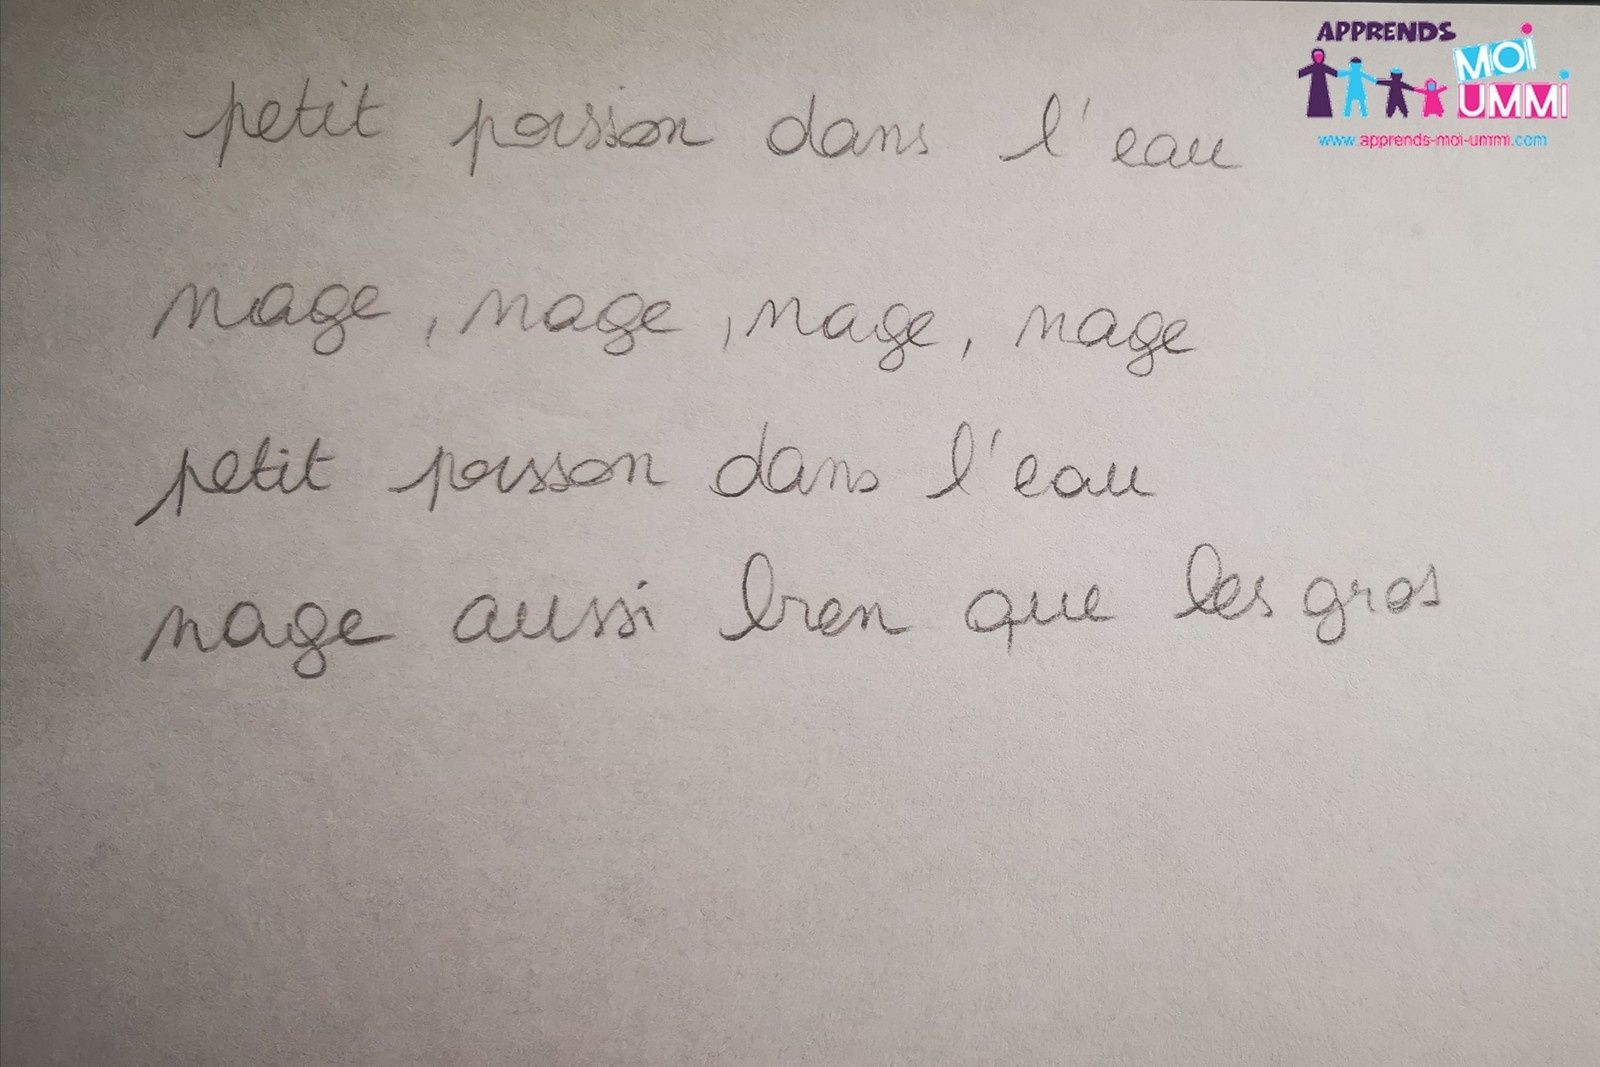 petit poisson dans l'eau
nage, nage, nage, nage
petit poisson dans l'eau
nage aussi bien que les gros
APPRENDS
MOI
UMMI
www.apprends-moi-ummi.com